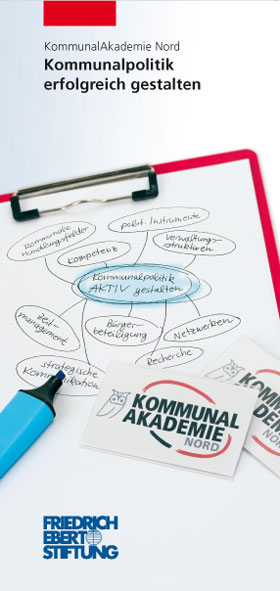 KommunalAkademie Nord
Kommunalpolitik
erfolgreich gestalten
polit. Instrumente
Kommunale
Handlungsfelder
Verwaltungs-
strukturen
Kompetenz
Kommunalpolitik
AKTIV gestalten
Zeit-
management
Bürger-
beteiligung
Netzwerken
Recherche
strategische
Kommunikation
KOMMUNAL
AKADEMIE
NORD
KOMM
AKADE
FRIEDRICH
EBERT
STIFTUNG